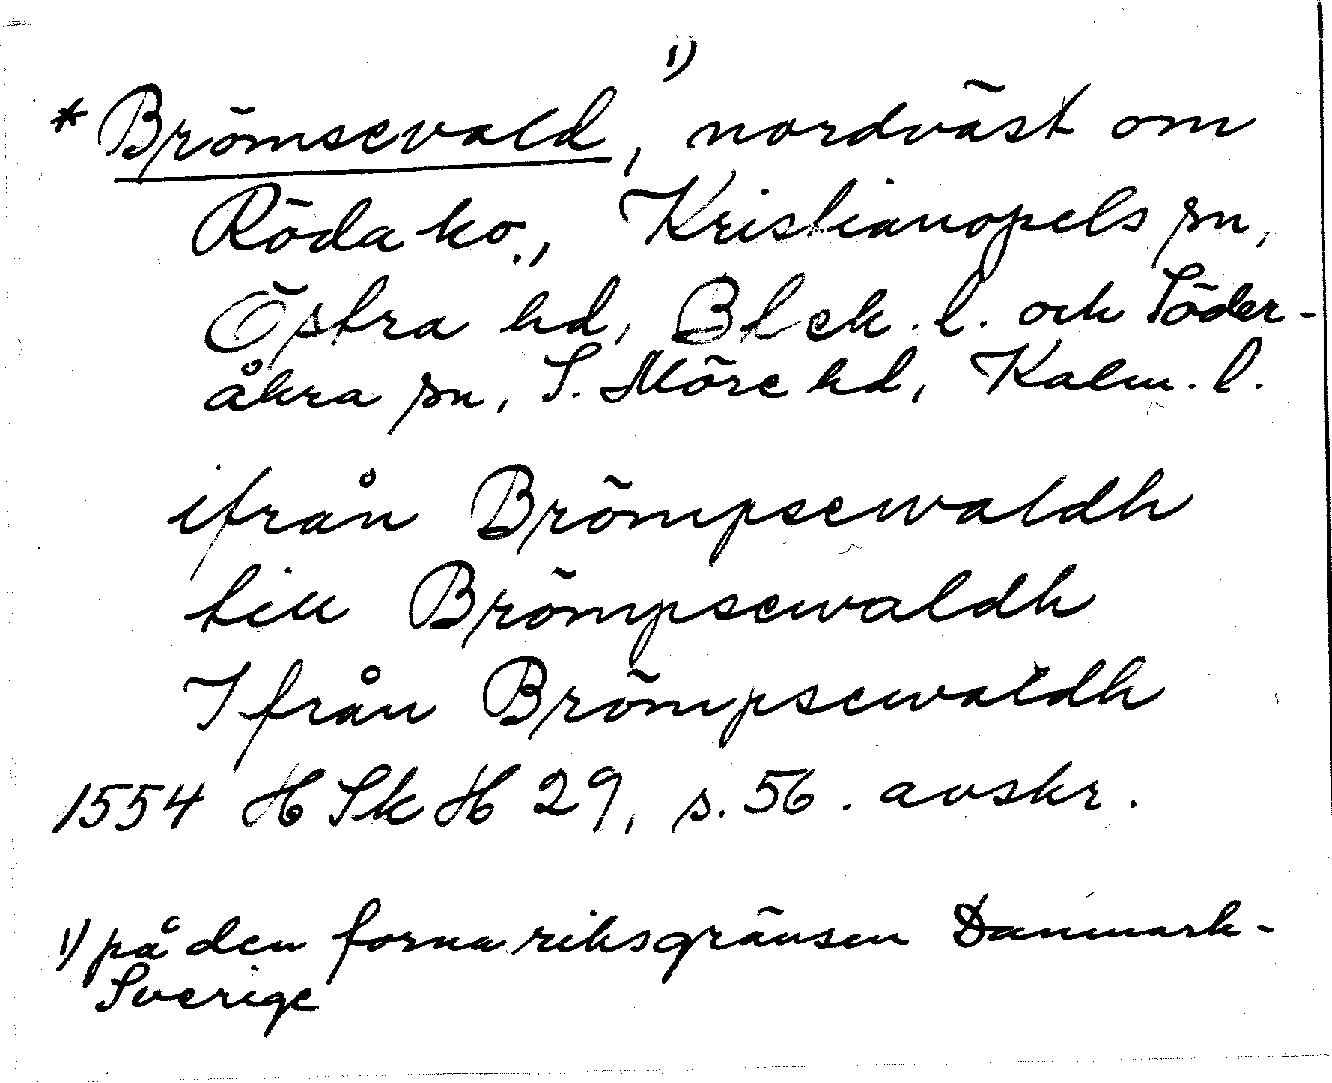 * Brömsevald, 1) nordväst om
Röda ko., Kristianopels sn,
Östra hd, Blek. l. och Söder-
åkra sn, S. Möre hd, Kalm. l.
ifrån Brömpsewaldh
till Brömpsewaldh
Ifrån Brömpsewaldh
1554 HSkH 29, s. 56. avskr.
1) på den forna riksgränsen Danmark-
Sverige